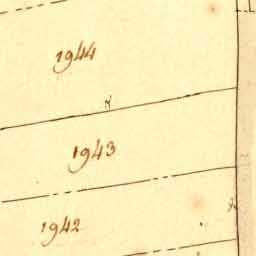 1944
1943
1942